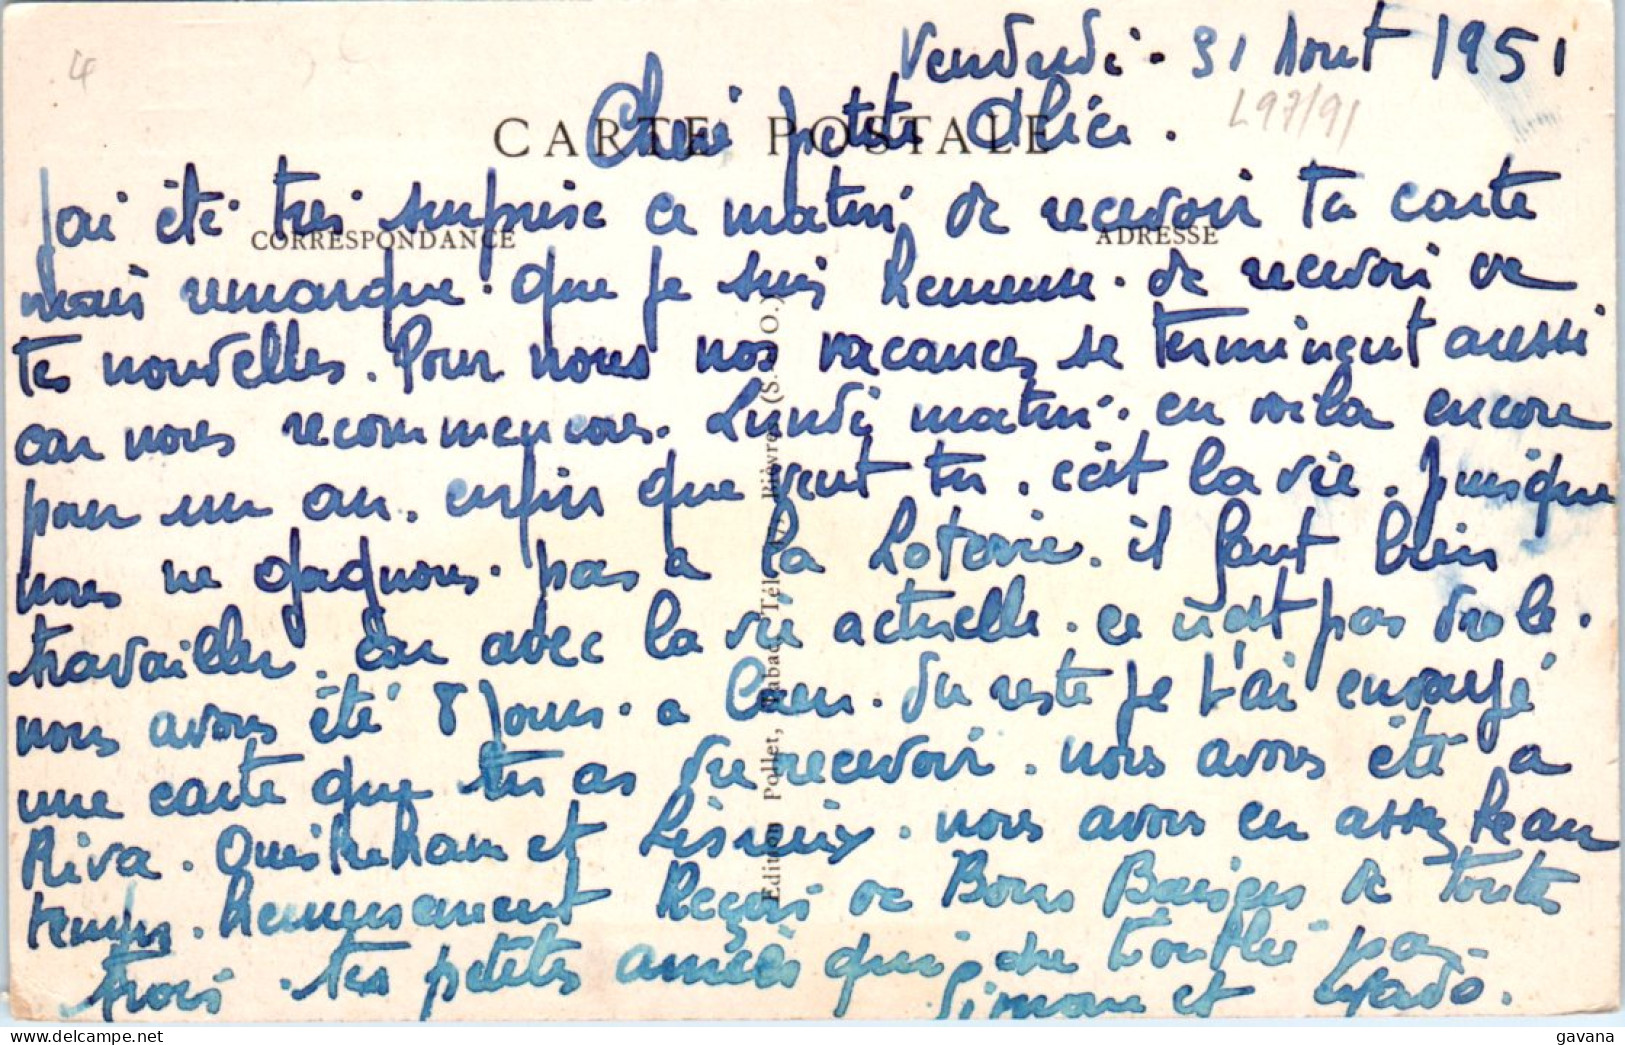 4
Vendredi - 31 Aout 1951
L97/91
CARTE POSTALE
Cheri petite Alice.
J'ai été très surprise ce matin de recevoir ta carte
CORRESPONDANCE
ADRESSE
mais remarque que je suis heureuse. de recevoir de
tes nouvelles. Pour nous nos vacances se terminent aussi
car nous recommencons. Lundi matin. en voila encore
pour un an. enfin que veut tu. c'est la vie. puisque
nous ne gagnons. pas a la Loterie. il faut bien
travailler. car avec la vie actuelle. ce n'est pas drole.
nous avons été 8 jours. a Caen. du reste je t'ai envoyé
une carte que tu as du recevoir. nous avons été a
Riva. Ouistreham et Lisieux. nous avons eu assez beau
temps. heureusement Reçois de Bons Baisers de toutes
trois. tes petites amies qui ne t'oublie pas
Simone et
Edition Pollet, Tabac, Tél. Bièvres (S.-&-O.)
gavana